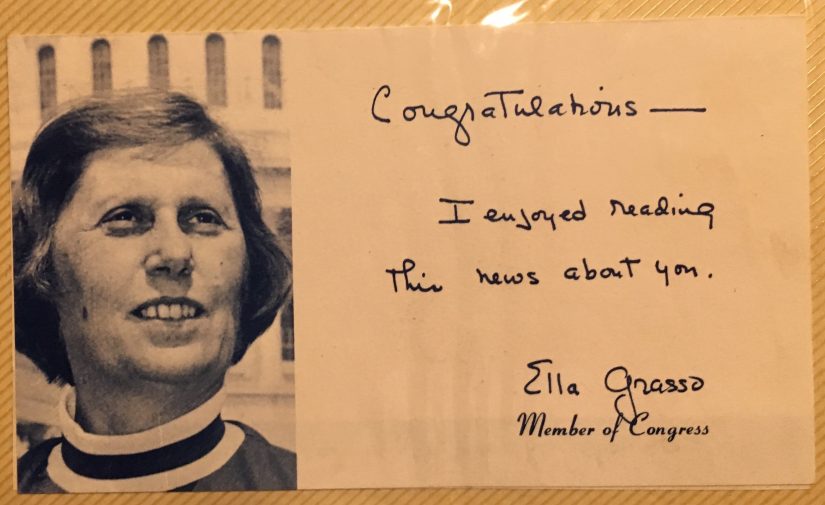 Congratulations —
I enjoyed reading
this news about you.
Ella Grasso
Member of Congress